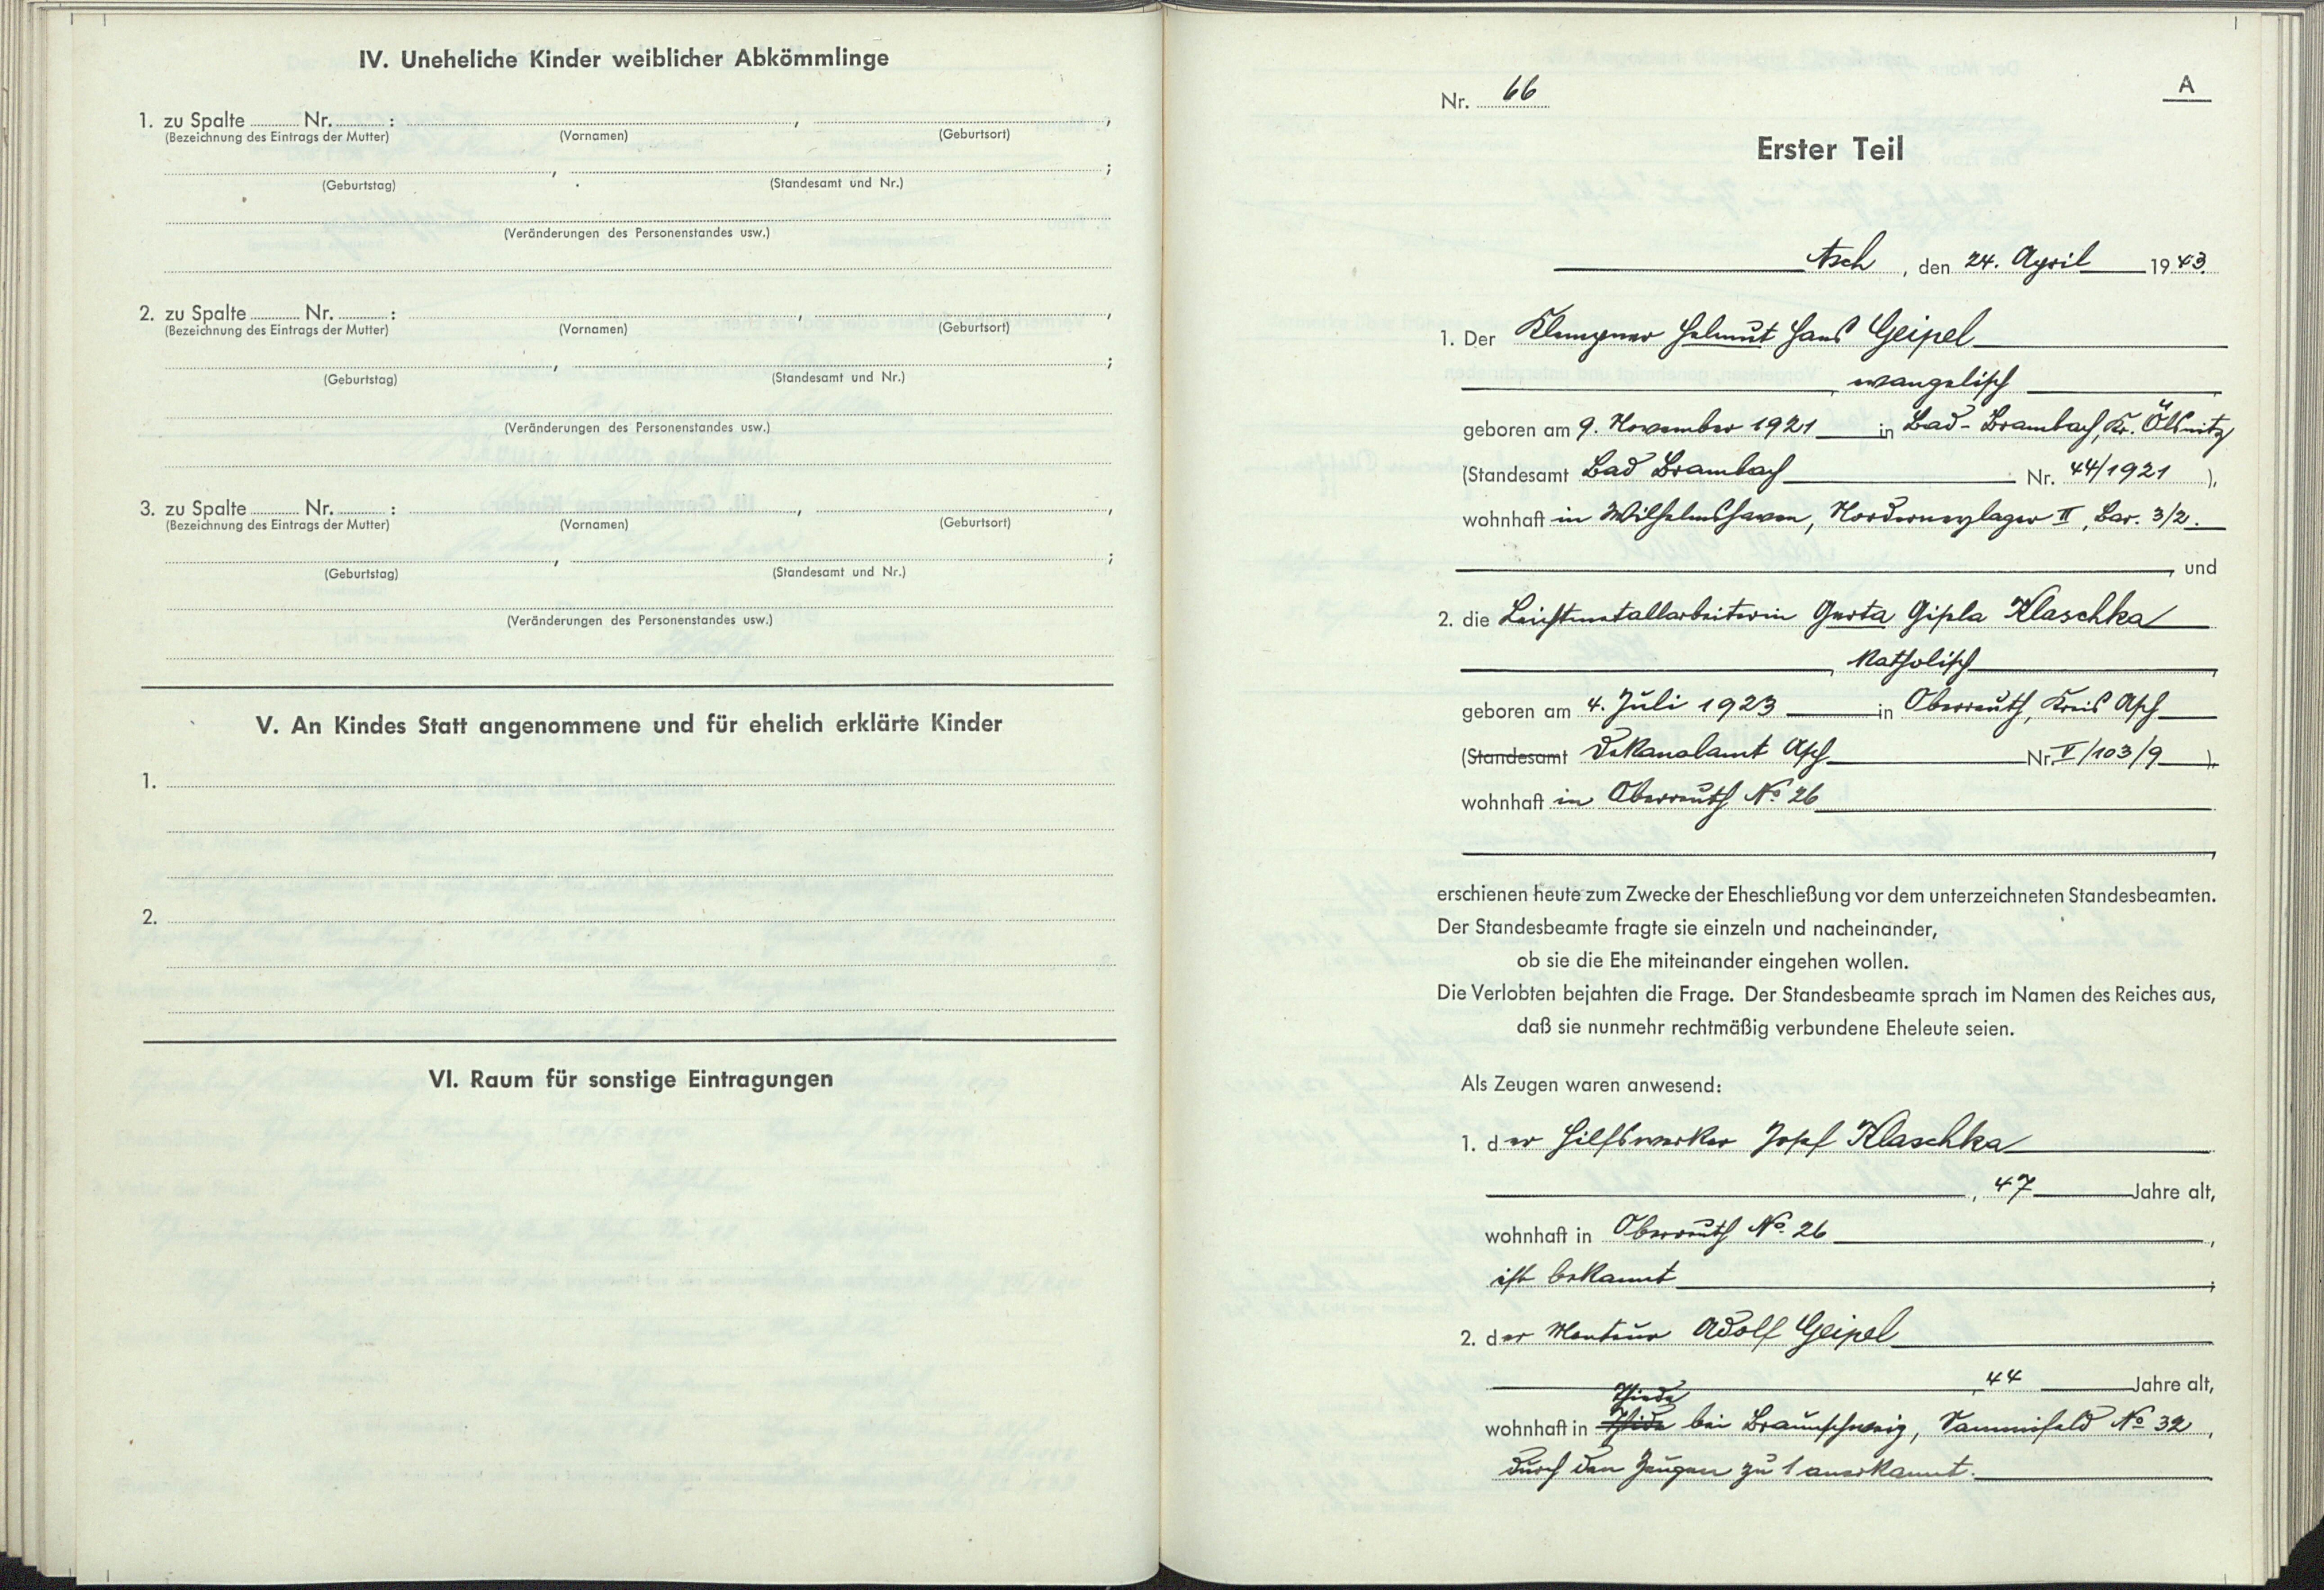 IV. Uneheliche Kinder weiblicher Abkömmlinge
1. zu Spalte Nr. : , ,
(Bezeichnung des Eintrags der Mutter) (Vornamen) (Geburtsort)
, ;
(Geburtstag) (Standesamt und Nr.)
(Veränderungen des Personenstandes usw.)
2. zu Spalte Nr. : , ,
(Bezeichnung des Eintrags der Mutter) (Vornamen) (Geburtsort)
, ;
(Geburtstag) (Standesamt und Nr.)
(Veränderungen des Personenstandes usw.)
3. zu Spalte Nr. : , ,
(Bezeichnung des Eintrags der Mutter) (Vornamen) (Geburtsort)
, ;
(Geburtstag) (Standesamt und Nr.)
(Veränderungen des Personenstandes usw.)
V. An Kindes Statt angenommene und für ehelich erklärte Kinder
1.
2.
VI. Raum für sonstige Eintragungen
A
Nr. 66
Erster Teil
Asch, den 24. April 1943.
1. Der Klempner Helmut Hans Geipel
, evangelisch
geboren am 9. November 1921 in Bad-Brambach, Kr. Ölsnitz
(Standesamt Bad Brambach Nr. 44/1921 ),
wohnhaft in Wilhelmshaven, Norderneylager II, Bar. 3/2.
, und
2. die Leichtmetallarbeiterin Gerta Gisela Klaschka
, katholisch
geboren am 4. Juli 1923 in Oberreuth, Kreis Asch
(Standesamt Dekanalamt Asch Nr. V/103/9 ),
wohnhaft in Oberreuth No 26
,
erschienen heute zum Zwecke der Eheschließung vor dem unterzeichneten Standesbeamten.
Der Standesbeamte fragte sie einzeln und nacheinander,
ob sie die Ehe miteinander eingehen wollen.
Die Verlobten bejahten die Frage. Der Standesbeamte sprach im Namen des Reiches aus,
daß sie nunmehr rechtmäßig verbundene Eheleute seien.
Als Zeugen waren anwesend:
1. der Hilfswerker Josef Klaschka
, 47 Jahre alt,
wohnhaft in Oberreuth No 26,
ist bekannt;
2. der Monteur Adolf Geipel
, 44 Jahre alt,
Thiede
wohnhaft in bei Braunschweig, No 32,
durch den Zeugen zu 1 anerkannt.